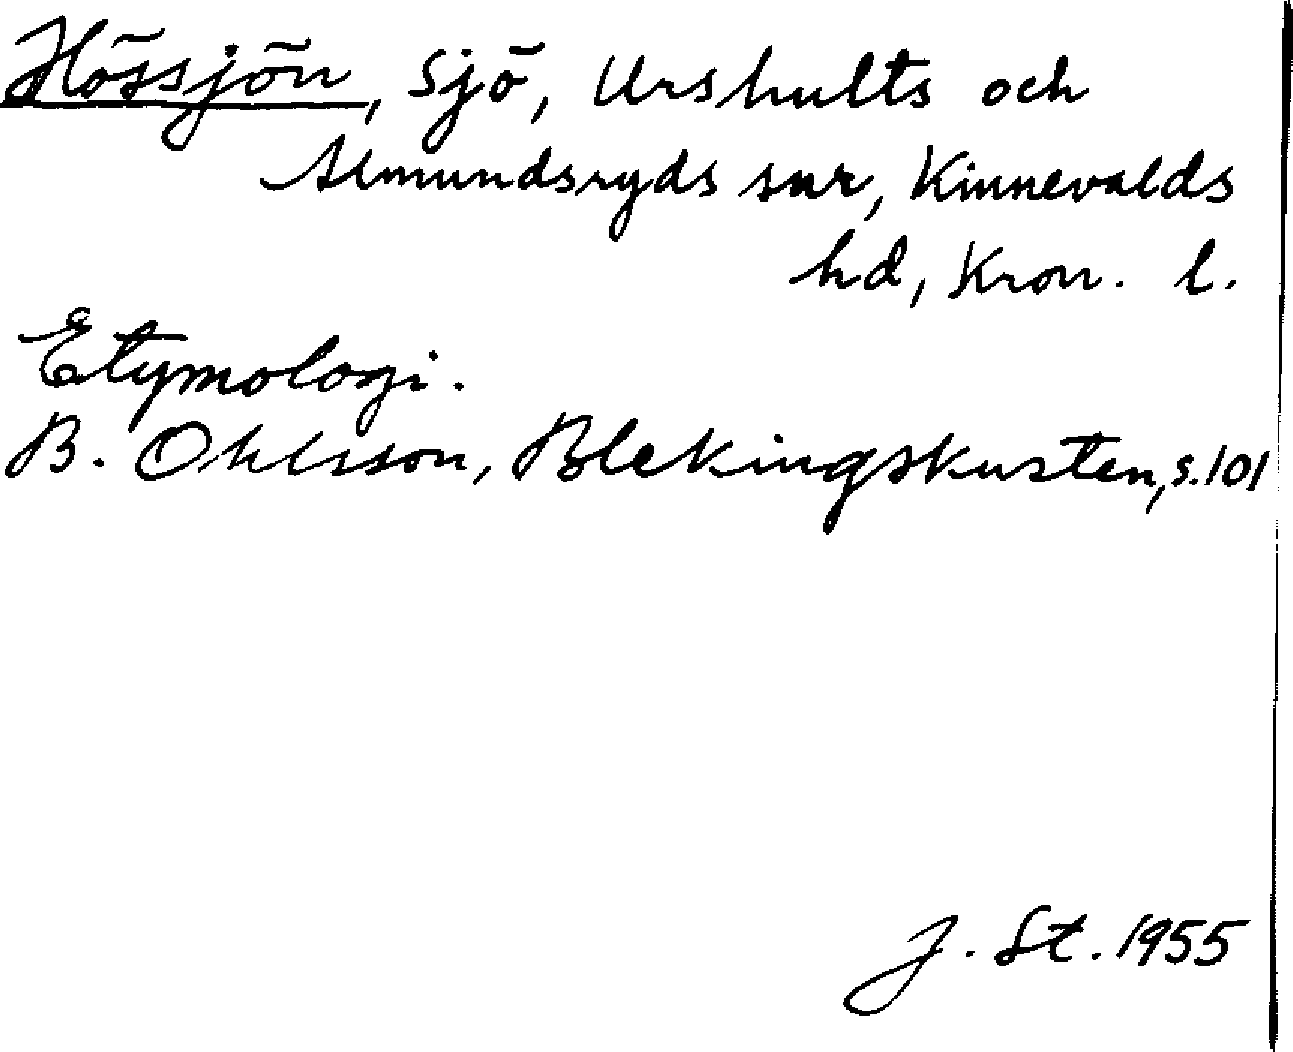 Hössjön, sjö, Urshults och
Almundsryds snr, Kinnevalds
hd, Kron. l.
Etymologi.
B. Ohlsson, Blekingskusten, s. 101
J. St. 1955